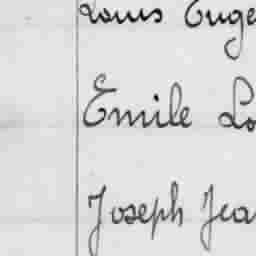 Louis Euge
Emile Lo
Joseph Jea